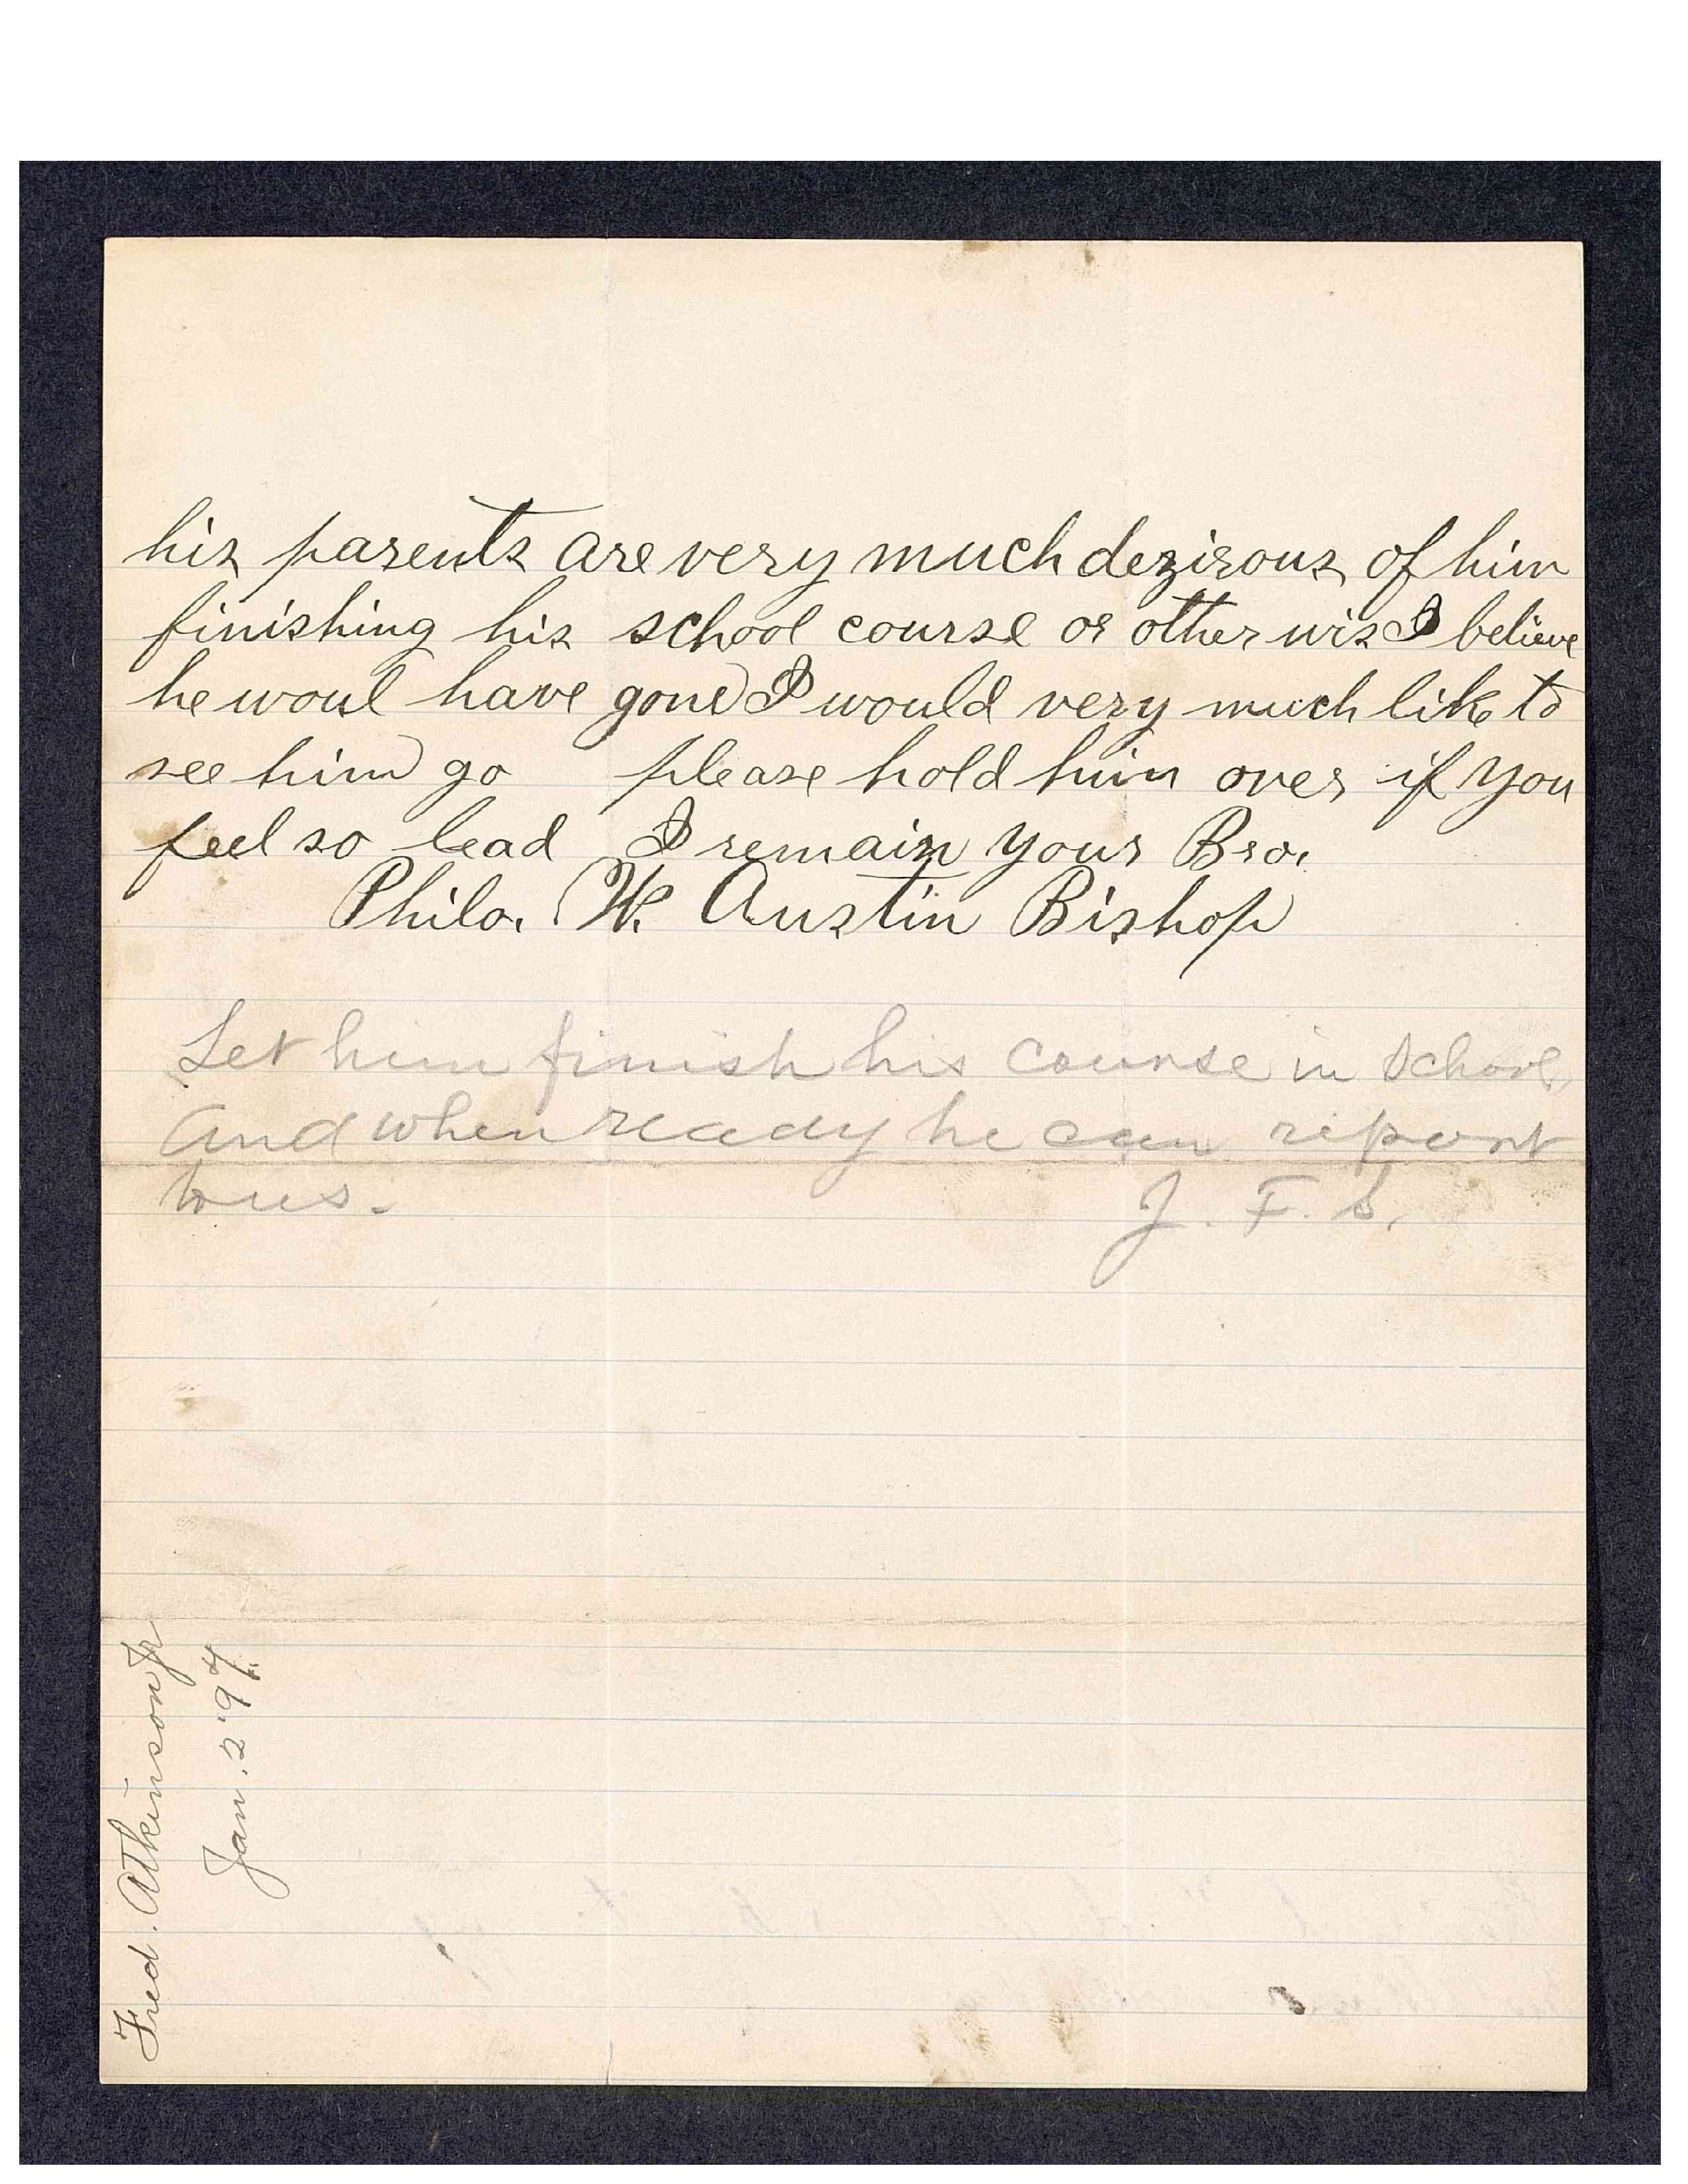 his parents are very much dezirous of him
finishing his school course or other wis I believe
he woul have gone I would very much like to
see him go please hold him over if you
feel so lead I remain your Bro.
Philo. W. Austin Bishop
Let him finish his course in School,
and when ready he can report
to us. J. F. S.
Fred. Atkinson Jr
Jan. 2 '97.